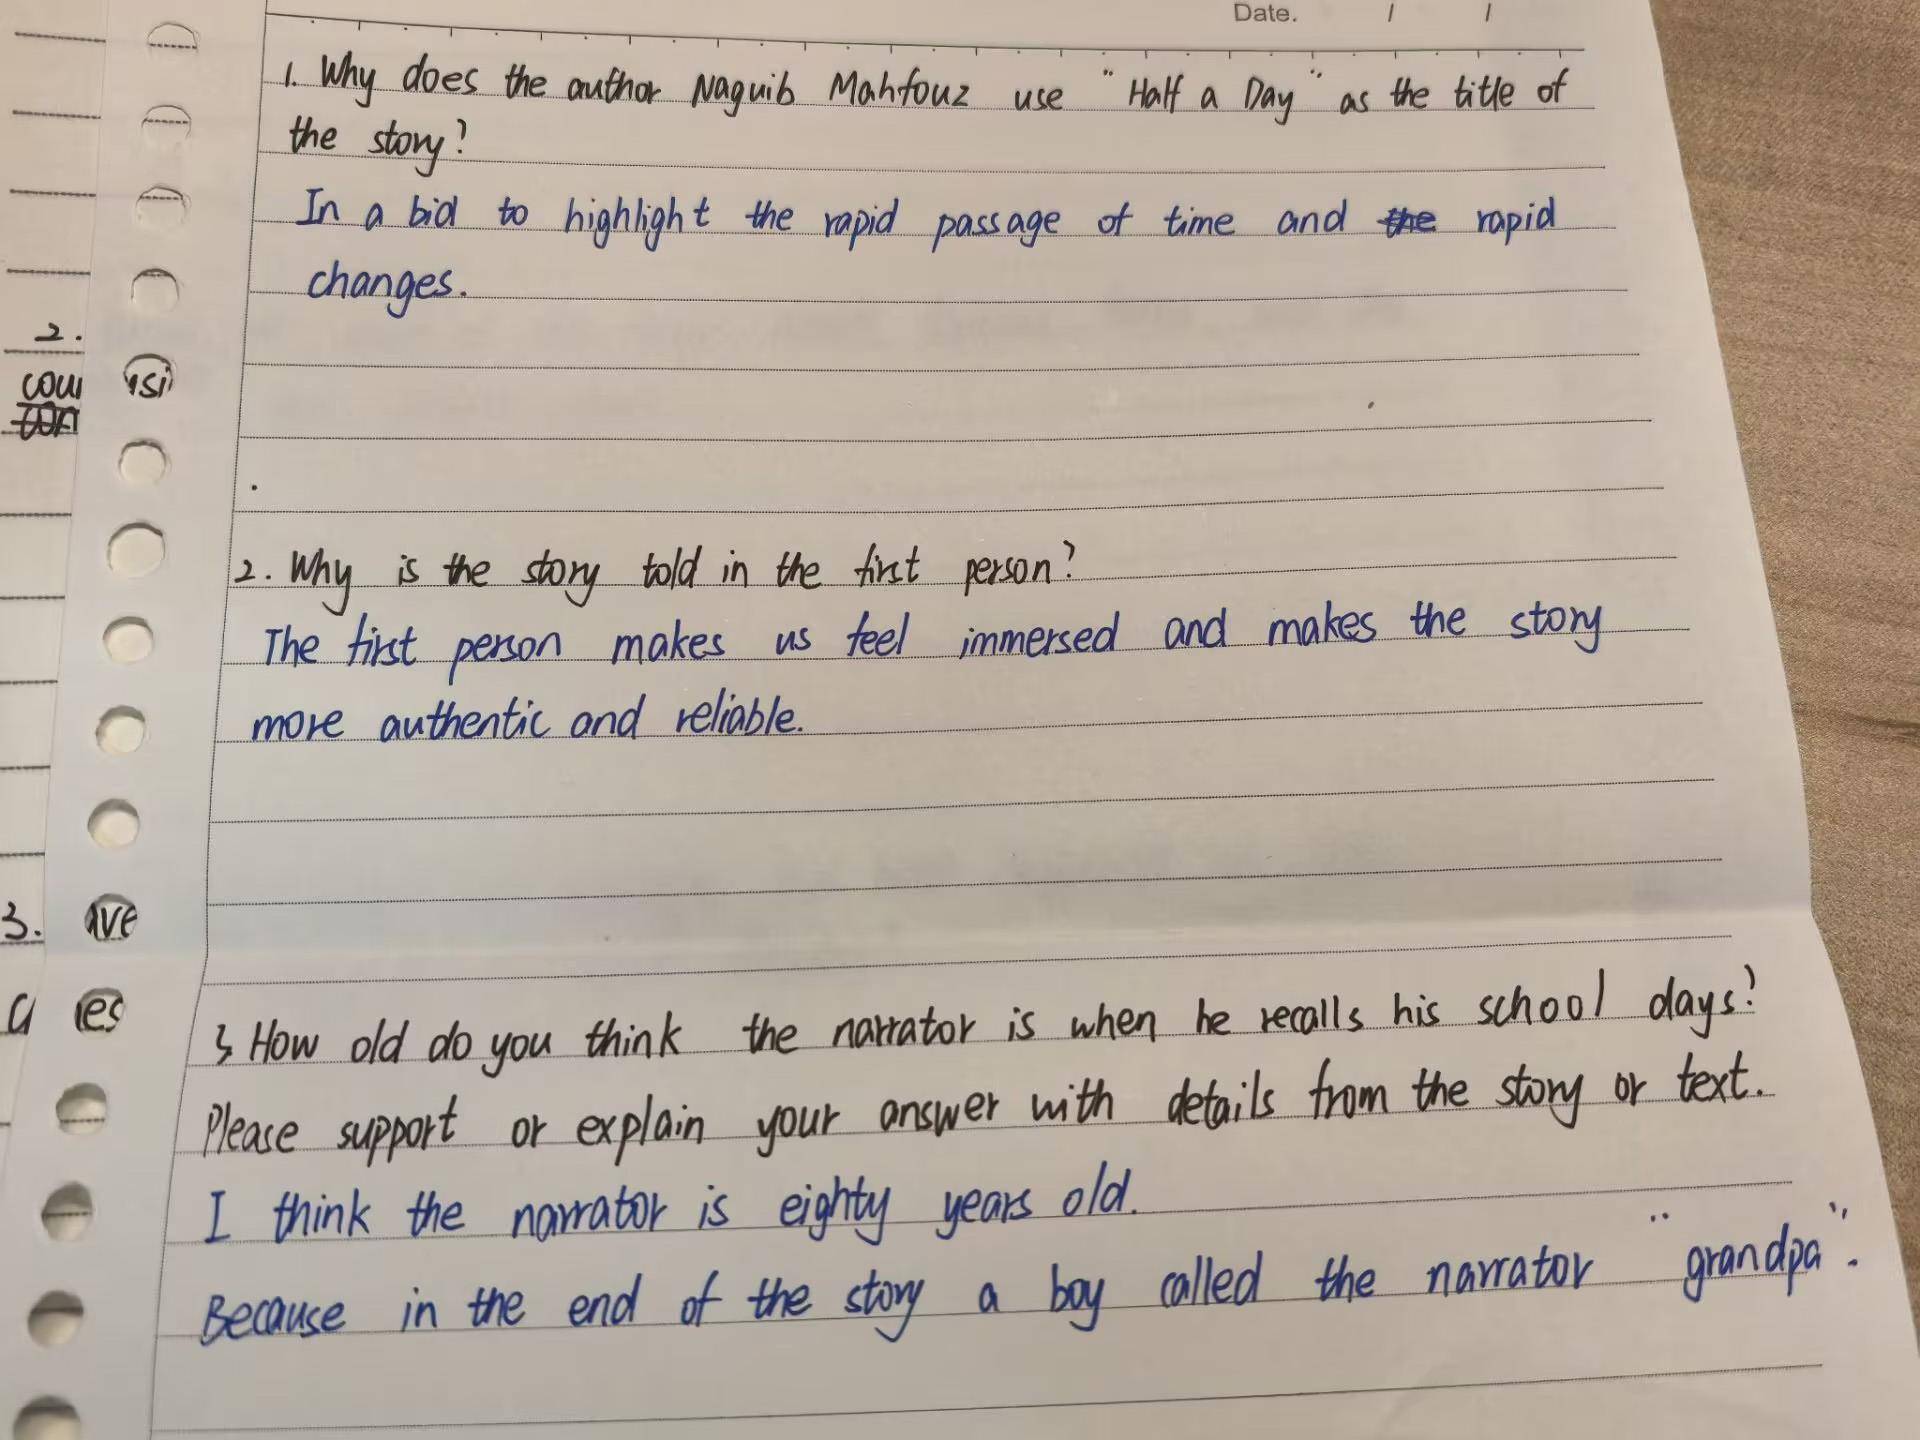 Date. / /
1. Why does the author Naguib Mahfouz use "Half a Day" as the title of
the story?
In a bid to highlight the rapid passage of time and the rapid
changes.
2.
2. Why is the story told in the first person?
The first person makes us feel immersed and makes the story
more authentic and reliable.
3.
3 How old do you think the narrator is when he recalls his school days?
Please support or explain your answer with details from the story or text.
I think the narrator is eighty years old.
Because in the end of the story a boy called the narrator "grandpa".